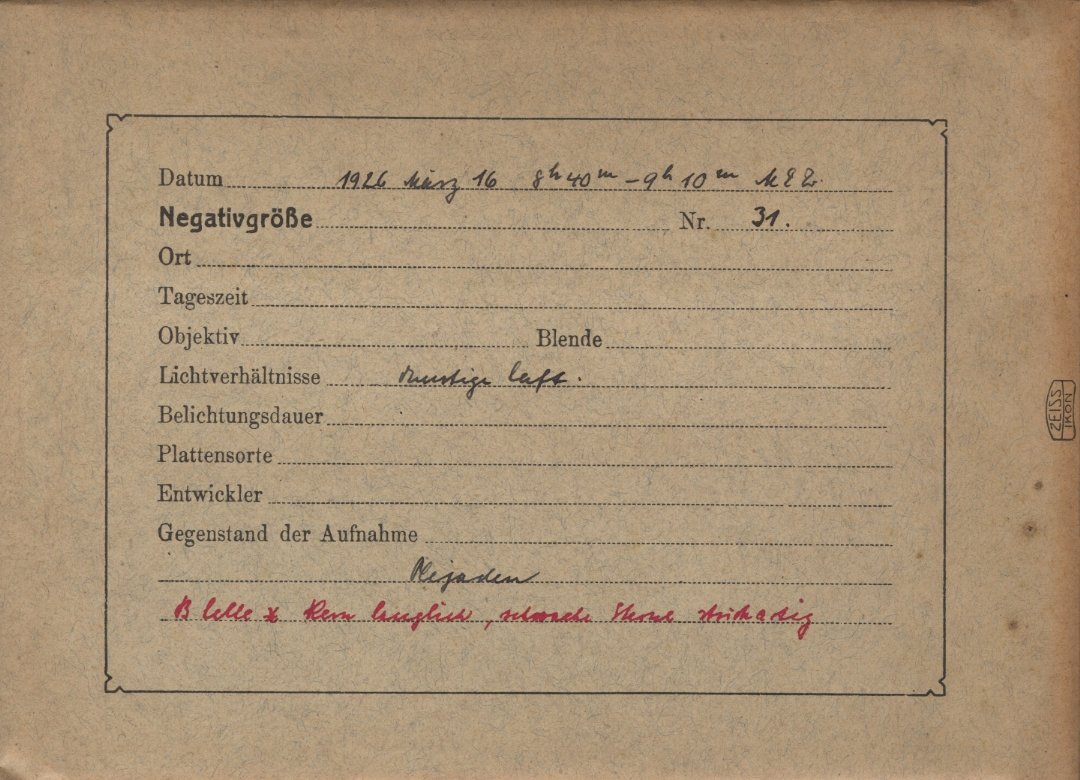 Datum 1926 März 16 8h 40m – 9h 10m MEZ.
Negativgröße Nr. 31.
Ort
Tageszeit
Objektiv Blende
Lichtverhältnisse dunstige Luft.
Belichtungsdauer
Plattensorte
Entwickler
Gegenstand der Aufnahme
Plejaden
B helle x Kern länglich, schwache Sterne strichartig
ZEISS
IKON